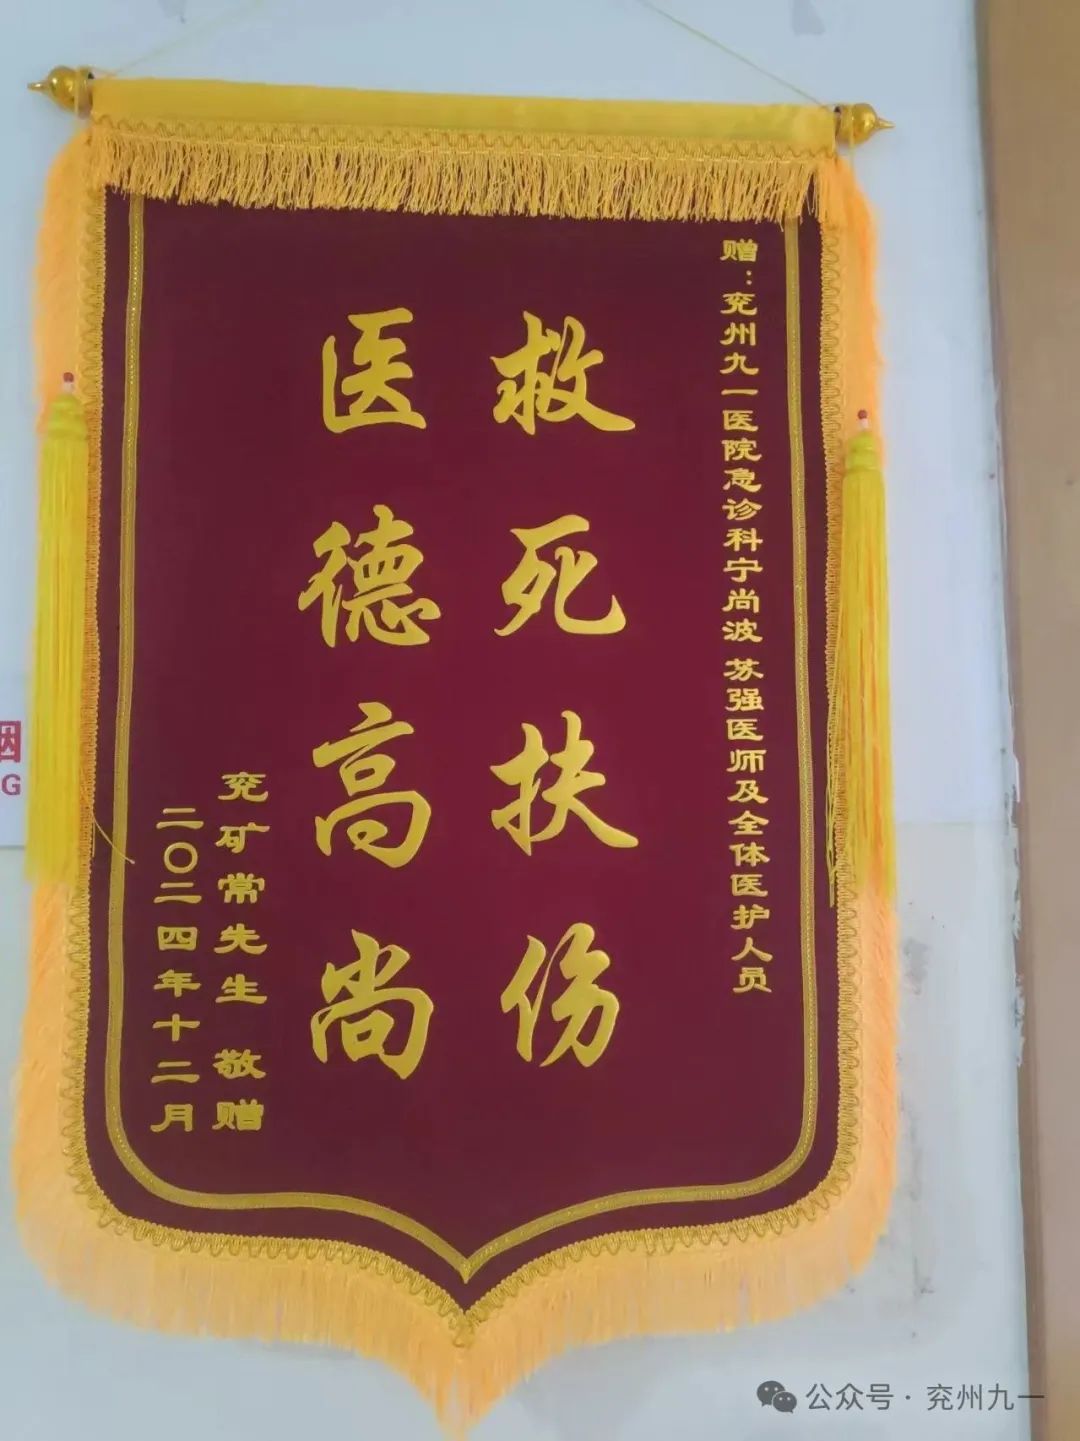 赠：兖州九一医院急诊科宁尚波 苏强医师及全体医护人员
救死扶伤
医德高尚
兖矿常先生 敬赠
二〇二四年十二月
烟
G
公众号·兖州九一